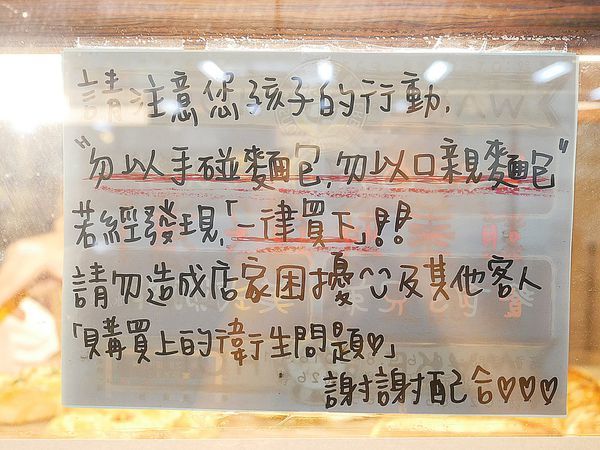 請注意您孩子的行動,
"勿以手碰麵包,勿以口親麵包"
若經發現,「一律買下」!!
請勿造成店家困擾及其他客人
「購買上的衛生問題♡」
謝謝配合♡♡♡